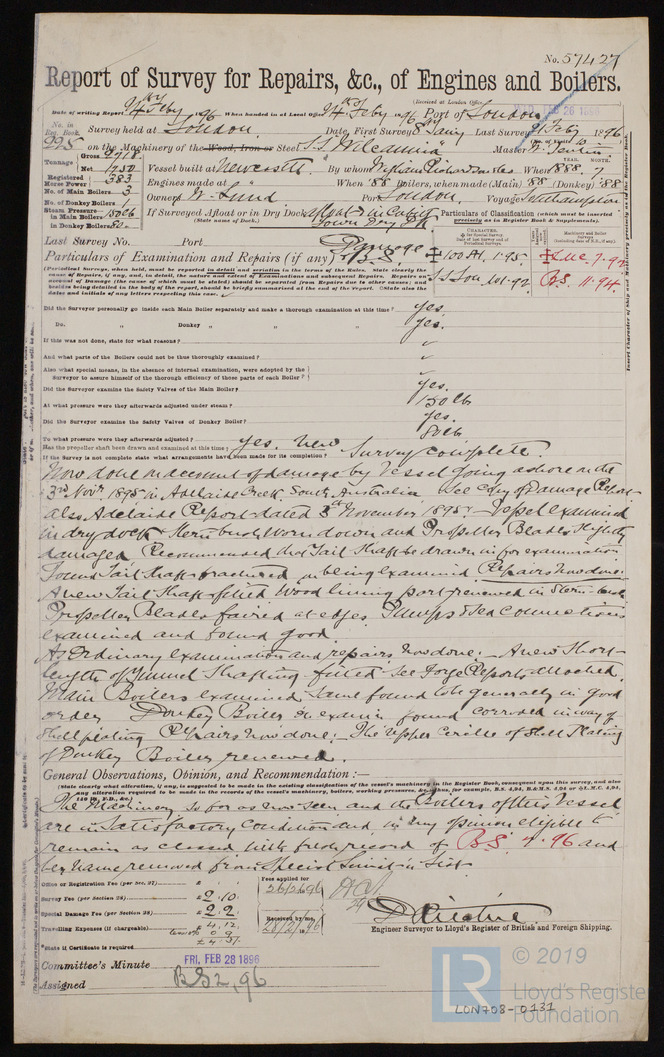 No. 57427
Report of Survey for Repairs, &c., of Engines and Boilers.
(Received at London Office
FEB 26 1896
Date of writing Report Feby 96 When handed in at Local Office Feby 96 Port of London
No. in Reg. Book.
295
Survey held at London. Date, First Survey Jany Last Survey Feby 1896
on the Machinery of the Wood, Iron or Steel S.S. Wilcannia Master
Tonnage Gross 2718 Net 1750
Vessel built at Newcastle By whom When 1888. 7
YEAR. MONTH.
Registered Horse Power 383
No. of Main Boilers 3
Engines made at " When '88 Boilers, when made (Main) '88 (Donkey) '88
No. of Donkey Boilers 1
Owners W. Lund Port London. Voyage Southampton
Steam Pressure in Main Boilers 150 lb
in Donkey Boilers 80
If Surveyed Afloat or in Dry Dock Afloat & in
(State name of Dock.)
Particulars of Classification (which must be inserted precisely as in Register Book & Supplements).
Last Survey No. Port
Particulars of Examination and Repairs (if any) Damage & B.S.
100 A1. 1.95
LMC. 7.92
S.S. Lon. 92
B.S. 11.94.
(Periodical Surveys, when held, must be reported in detail and seriatim in the terms of the Rules. State clearly the
Did the Surveyor personally go inside each Main Boiler separately and make a thorough examination at this time? yes.
Do. " Donkey " " " yes.
If this was not done, state for what reasons?
And what parts of the Boilers could not be thus thoroughly examined?
Also what special means, in the absence of internal examination, were adopted by the
Surveyor to assure himself of the thorough efficiency of those parts of each Boiler?
Did the Surveyor examine the Safety Valves of the Main Boiler? yes.
At what pressure were they afterwards adjusted under steam? 150 lb
Did the Surveyor examine the Safety Valves of Donkey Boiler? yes.
To what pressure were they afterwards adjusted? 80 lb
Has the propeller shaft been drawn and examined at this time? yes. new
If the Survey is not complete state what arrangements have been made for its completion? Survey complete.
Now done on account of damage by Vessel going ashore on the
3rd Novr. 1895 in Adelaide Creek. South Australia. See Copy of Damage Report
also Adelaide Report dated November 1895. Vessel examined
in dry dock & Stern bush worn down and Propeller Blades slightly
damaged. Recommended the Tail Shaft be drawn in for examination
Found Tail Shaft fractured on being examined. Repairs now done:
A new Tail Shaft fitted wood lining part renewed in Stern bush
Propeller Blades faired at edges. Pumps & Sea Connections
examined and found good.
As Ordinary examination and repairs now done:- A new Short
length of Tunnel Shafting fitted. See Forge Reports attached.
Main Boilers examined same found to be generally in good
order. Donkey Boiler on exam found corroded in way of
shell plating Repairs now done:- The Upper Circle of Shell Plating
of Donkey Boiler renewed.
General Observations, Opinion, and Recommendation:—
(State clearly what alteration, if any, is suggested to be made in the existing classification of the vessel's machinery in the Register Book, consequent upon this survey, and also
any alteration required to be made in the records of the vessel's machinery, boilers, working pressures, &c., thus, for example, B.S. 4,94, B.&M.S. 4,94 or LMC 4,94,
140 lb., F.D., &c.)
The Machinery so far as now seen and the Boilers of this Vessel
are in Satisfactory Condition and in my opinion eligible to
remain as classed with fresh record of B.S. 2.96 and
her name removed from Special Limit'n List
Office or Registration Fee (per Sec. 27)
Survey Fee (per Section 28) £ 2.10
Special Damage Fee (per Section 28) £ 2.2
Travelling Expenses (if chargeable)
Fees applied for 26/2/96
Received by me, 28/2/96
Engineer Surveyor to Lloyd's Register of British and Foreign Shipping.
*State if Certificate is required
Committee's Minute FRI, FEB 28 1896
Assigned BS 2,96
LR
© 2019
Lloyd's Register
Foundation
LON708-0131